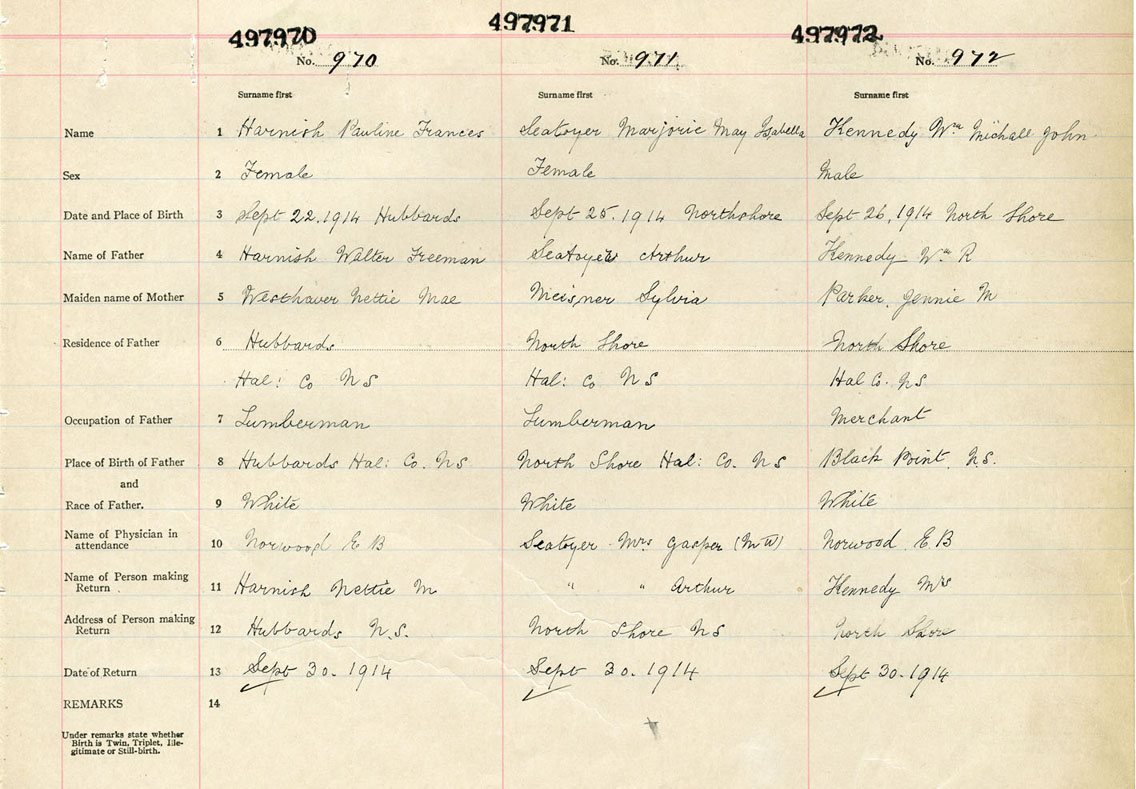 497970 497971 497972
No. 970 No. 971 No. 972
Surname first Surname first Surname first
Name 1 Harnish Pauline Frances Seatoyer Marjorie May Isabella Kennedy Wm Michall John
Sex 2 Female Female Male
Date and Place of Birth 3 Sept 22.1914 Hubbards Sept 25.1914 Northshore Sept 26,1914 North Shore
Name of Father 4 Harnish Walter Freeman Seatoyer Arthur Kennedy Wm R
Maiden name of Mother 5 Westhaver Nettie Mae Meisner Sylvia Parker, Jennie M
Residence of Father 6 Hubbards North Shore North Shore
Hal: Co NS Hal: Co NS Hal Co. NS
Occupation of Father 7 Lumberman Lumberman Merchant
Place of Birth of Father 8 Hubbards Hal: Co. NS North Shore Hal: Co. NS Black Point, NS.
and
Race of Father. 9 White White White
Name of Physician in
attendance 10 Norwood E B Seatoyer Mrs Gasper (MW) Norwood E B
Name of Person making
Return 11 Harnish Nettie M " " Arthur Kennedy Mrs
Address of Person making
Return 12 Hubbards N.S. North Shore NS North Shore
Date of Return 13 Sept 30. 1914 Sept 30. 1914 Sept 30. 1914
REMARKS 14
Under remarks state whether
Birth is Twin, Triplet, Ille-
gitimate or Still-birth.